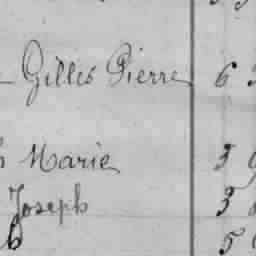 Gilles Pierre 6
Marie 3
Joseph 3
5